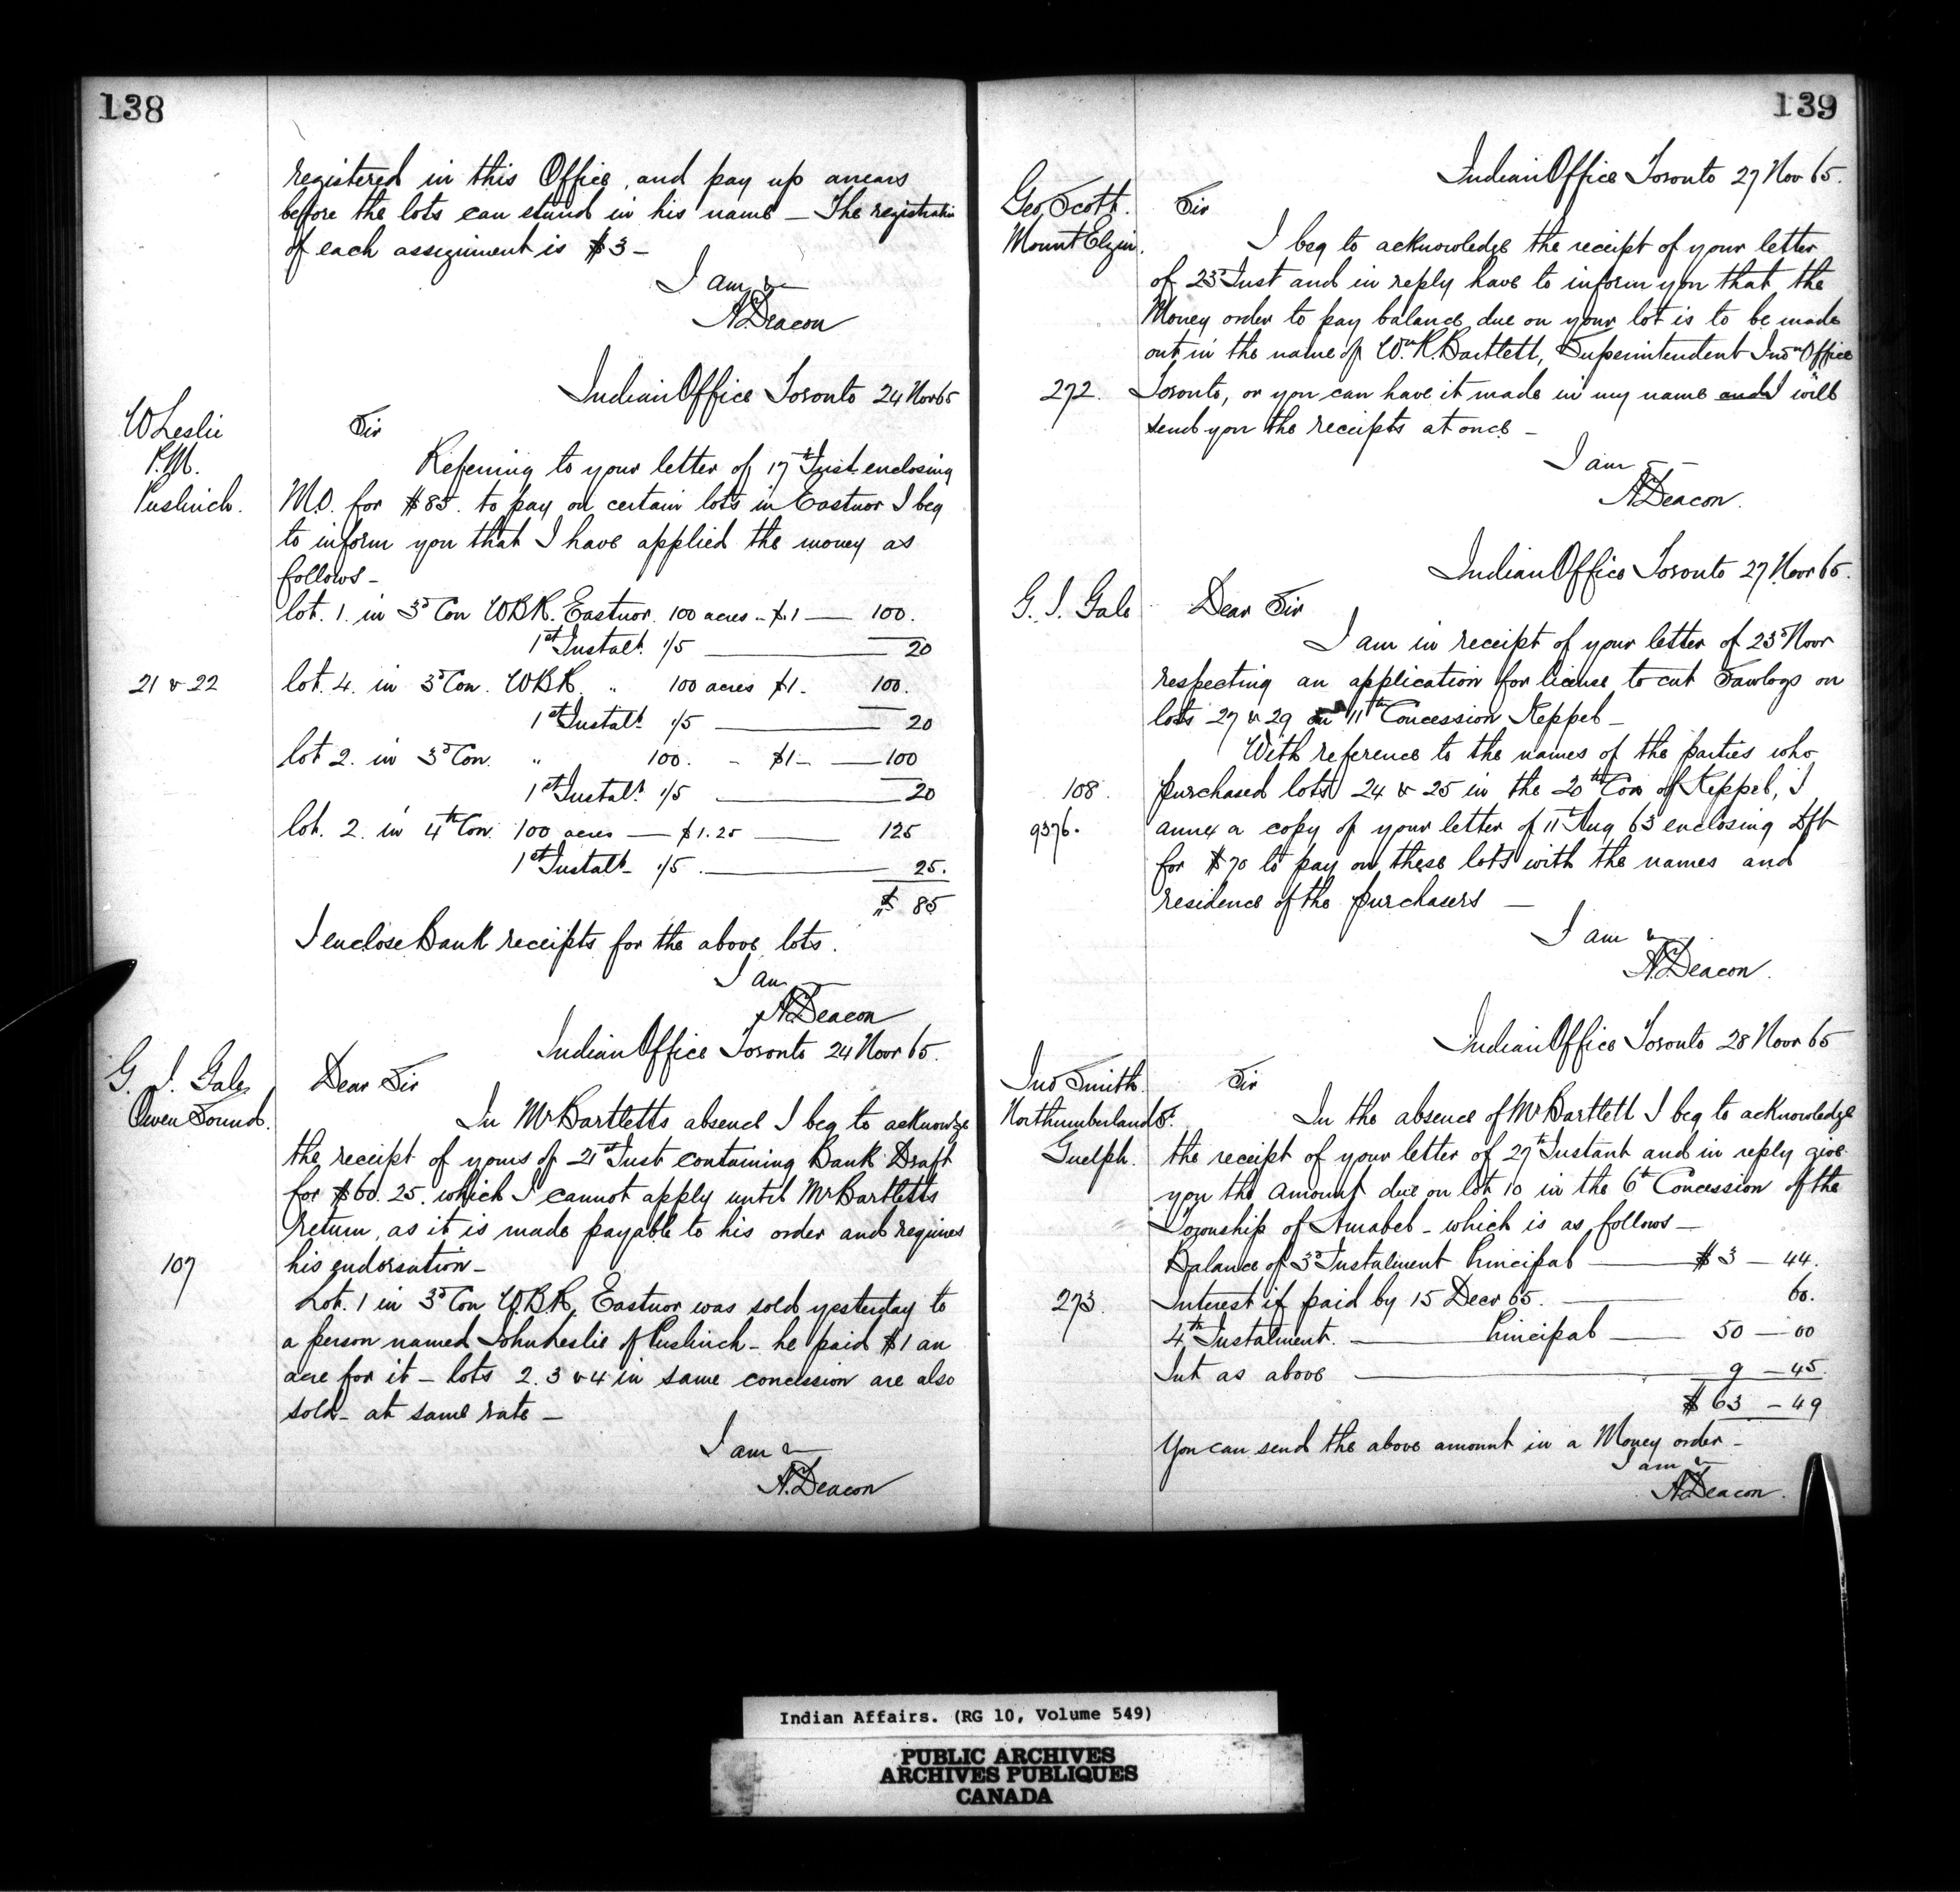 138
registered in this Office, and pay up arrears
before the lots can stand in his name — The registration
of each assignment is $3 —
I am &c
A. Deacon
Indian Office Toronto 24 Nov 65
W Leslie
P.M.
Puslinch.
Sir
Referring to your letter of 17th Inst. enclosing
M.O. for $85. to pay on certain lots in Eastnor I beg
to inform you that I have applied the money as
follows —
lot. 1. in 3d Con W.B.R. Eastnor. 100 acres - $1 — 100.
1st Instalt. 1/5 — 20
21 & 22
lot. 4. in 3d Con. W.B.R. " 100 acres $1 - 100.
1st Instalt. 1/5 — 20
lot 2. in 3d Con. " 100. - $1 - — 100
1st Instalt. 1/5 — 20
lot. 2. in 4th Con. 100 acres — $1.25 — 125
1st Instalt - 1/5 — 25.
$ 85
I enclose Bank receipts for the above lots.
I am
A. Deacon
Indian Office Toronto 24 Novr 65.
G. J. Gale
Owen Sound.
Dear Sir
In Mr Bartletts absence I beg to acknowdge
the receipt of yours of 21st Inst containing Bank Draft
for $60.25. which I cannot apply until Mr Bartletts
return, as it is made payable to his order and requires
107
his endorsation —
Lot. 1 in 3d Con W.B.R, Eastnor was sold yesterday to
a person named John Leslie of Puslinch - he paid $1 an
acre for it — lots 2. 3 & 4 in same concession are also
sold - at same rate —
I am &c
A. Deacon
139
Indian Office Toronto 27 Nov 65.
Geo, Scott.
Mount Elgin.
Sir
I beg to acknowledge the receipt of your letter
of 23d Inst and in reply have to inform you that the
Money order to pay balance due on your lot is to be made
out in the name of Wm R Bartlett, Superintendent Indn Office
272.
Toronto, or you can have it made in my name and I will
send you the receipts at once —
I am
A. Deacon.
Indian Office Toronto 27 Novr 65.
G. J. Gale
Dear Sir
I am in receipt of your letter of 23d Novr
respecting an application for license to cut Sawlogs on
lots 27 & 29 on 11th Concession Keppel —
With reference to the names of the parties who
108.
purchased lots 24 & 25 in the 20th Con of Keppel, I
9376.
annex a copy of your letter of 11th Aug 63 enclosing Dft
for $70 to pay on these lots with the names and
residence of the purchasers —
I am &c
A. Deacon.
Indian Office Toronto 28 Novr 65
Jno Smith.
Northumberland St.
Guelph.
Sir
In the absence of Mr Bartlett I beg to acknowledge
the receipt of your letter of 27th Instant and in reply give
you the amount due on lot 10 in the 6th Concession of the
Township of Amabel - which is as follows —
Balance of 3d Instalment Principal — $3 — 44.
273.
Interest if paid by 15 Decr 65. — 60.
4th Instalment. — Principal — 50 — 00
Int as above — 9 — 45.
$ 63 — 49
You can send the above amount in a Money order —
I am &c
A. Deacon.
Indian Affairs. (RG 10, Volume 549)
PUBLIC ARCHIVES
ARCHIVES PUBLIQUES
CANADA